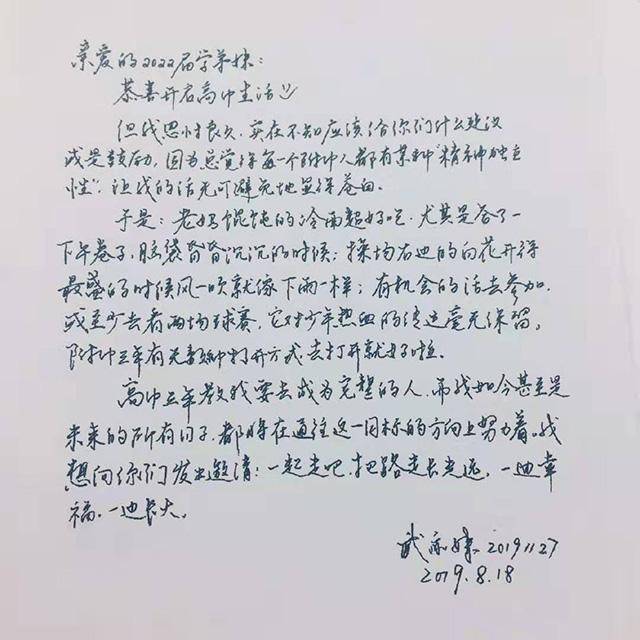 亲爱的2022届学弟妹：
恭喜开启高中生活
但我思忖良久，实在不知应该给你们什么建议
或是鼓励，因为总觉得每一个附中人都有某种“精神独立
性”，让我的话无可避免地显得苍白。
于是：老妈馄饨的冷面超好吃，尤其是答了一
下午卷子，脑袋昏昏沉沉的时候；操场右边的白花开得
最盛的时候风一吹就像下雨一样；有机会的话去参加，
或至少去看两场球赛，它对少年热血的传达毫无保留。
附中三年有无数种打开方式，去打开就好啦。
高中三年教我要去成为完整的人，而我如今甚至是
未来的所有日子，都将在通往这一目标的方向上努力着。我
想向你们发出邀请：一起走吧，把路走长走远，一边幸
福，一边长大。
武 20191127
2019.8.18